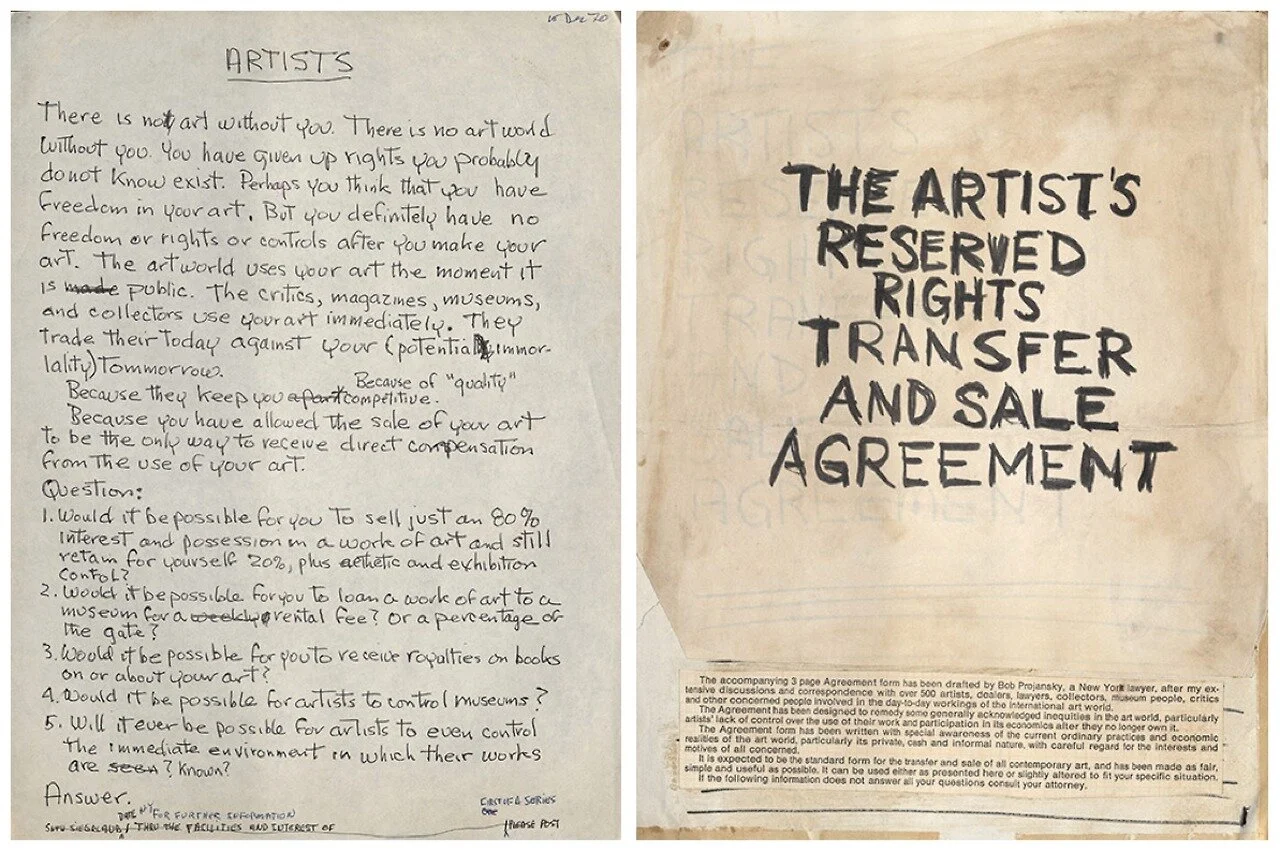 15 Dec 70
ARTISTS
There is not art without you. There is no art world
without you. You have given up rights you probably
do not know exist. Perhaps you think that you have
freedom in your art. But you definitely have no
freedom or rights or controls after you make your
art. The art world uses your art the moment it
is made public. The critics, magazines, museums,
and collectors use your art immediately. They
trade their today against your (potential immor-
tality) tommorrow.
Because they keep you apart competitive. Because of "quality"
Because you have allowed the sale of your art
to be the only way to receive direct compensation
from the use of your art.
Question:
1. Would it be possible for you to sell just an 80%
interest and possession in a work of art and still
retain for yourself 20%, plus aethetic and exhibition
control?
2. Would it be possible for you to loan a work of art to a
museum for a weekly rental fee? Or a percentage of
the gate?
3. Would it be possible for you to receive royalties on books
on or about your art?
4. Would it be possible for artists to control museums?
5. Will it ever be possible for artists to even control
the immediate environment in which their works
are seen? Known?
Answer.
DATE NY FOR FURTHER INFORMATION
FIRST OF A SERIES
ONE
SETH SIEGELAUB / THRU THE FACILITIES AND INTEREST OF
PLEASE POST
THE ARTIST'S
RESERVED
RIGHTS
TRANSFER
AND SALE
AGREEMENT
The accompanying 3 page Agreement form has been drafted by Bob Projansky, a New York lawyer, after my ex-
tensive discussions and correspondence with over 500 artists, dealers, lawyers, collectors, museum people, critics
and other concerned people involved in the day-to-day workings of the international art world.
The Agreement has been designed to remedy some generally acknowledged inequities in the art world, particularly
artists' lack of control over the use of their work and participation in its economics after they no longer own it.
The Agreement form has been written with special awareness of the current ordinary practices and economic
realities of the art world, particularly its private, cash and informal nature, with careful regard for the interests and
motives of all concerned.
It is expected to be the standard form for the transfer and sale of all contemporary art, and has been made as fair,
simple and useful as possible. It can be used either as presented here or slightly altered to fit your specific situation.
If the following information does not answer all your questions consult your attorney.